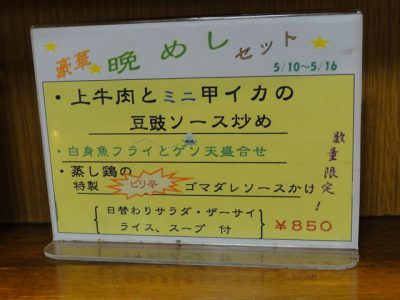 豪華 晩めし セット
5/10～5/16
・上牛肉とミニ甲イカの
豆豉ソース炒め
・白身魚フライとゲソ天盛合せ
・蒸し鶏の
特製 ピリ辛 ゴマダレソースかけ
数量限定！
日替わりサラダ・ザーサイ
ライス、スープ 付
￥850